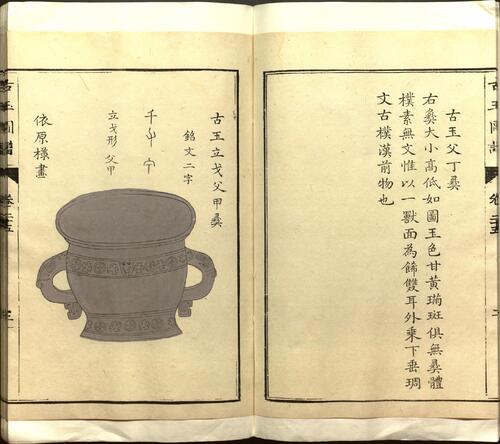 古玉父丁彝
右彝大小高低如圖玉色甘黃瑞斑俱無彝體
樸素無文惟以一獸面為飾雙耳外乘下垂琱
文古樸漢前物也
古玉圖譜
卷二十五
古玉立戈父甲彝
銘文二字
立戈形 父甲
依原樣畫